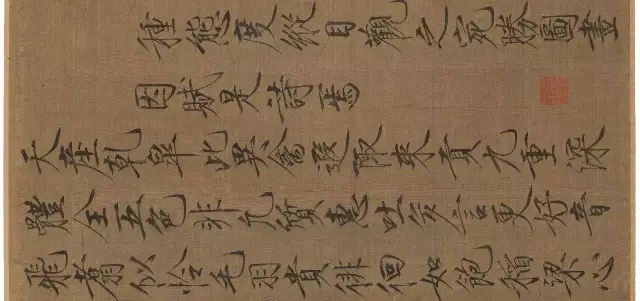 種態度縱目觀之宛勝圖畫
因賦是詩焉
天產乾皋此異禽遐陬來貢九重深
體全五色非凡質惠吐多言更好音
飛翥似憐毛羽貴徘徊如飽稻粱心